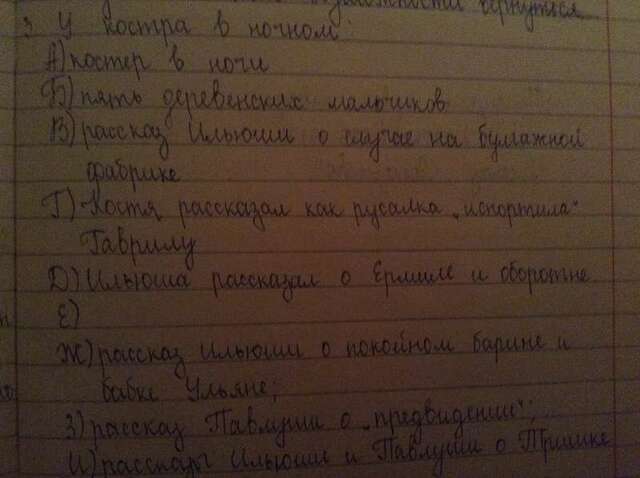 вернуться
3. У костра в ночном:
А) костер в ночи
Б) пять деревенских мальчиков
В) рассказ Ильюши о случае на бумажной
фабрике
Г) Костя рассказал как русалка „испортила"
Гаврилу
Д) Ильюша рассказал о Ермиле и оборотне
Е)
Ж) рассказ Ильюши о покойном барине и
бабке Ульяне;
З) рассказ Павлуши о „предвидение";
И) рассказы Ильюши и Павлуши о Тришке